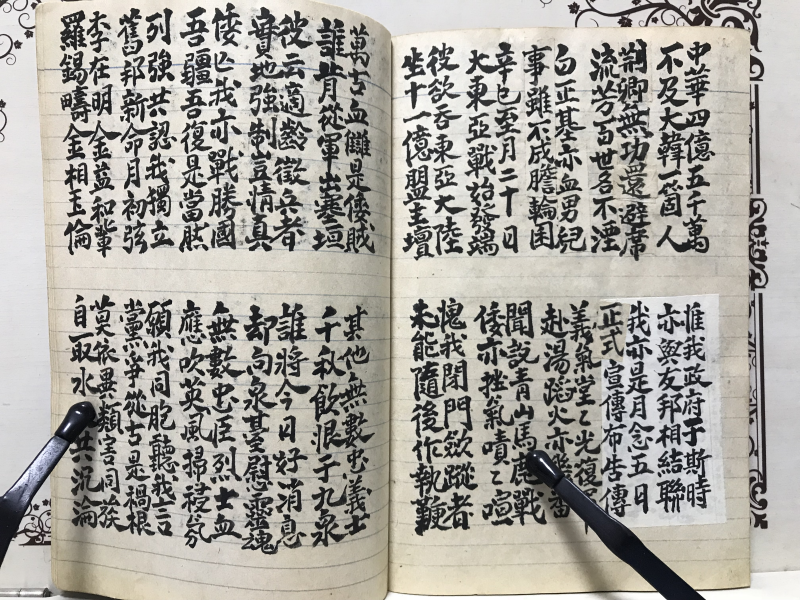 中華四億五千萬
不及大韓一箇人
荆卿無功還避席
流芳百世名不湮
白正基亦血男兒
事雖不成膽輪囷
辛巳至月二十日
大東亞戰始發端
彼欲呑東亞大陸
坐十一億盟主壇
惟我政府于斯時
亦與友邦相結聯
我亦是月念五日
正式宣傳布告傳
義氣堂〻光復軍
赴湯蹈火亦番
聞說青山馬鹿戰
倭亦挫氣嘖〻喧
愧我閉門斂蹤者
未能隨後作執鞭
萬古血讎是倭賊
誰肯從軍出塞垣
彼云適齡徵兵者
實地強制豈情眞
倭亡我亦戰勝國
吾疆吾復是當然
列強共認我獨立
舊邦新命月初弦
李在明金益和輩
羅錫疇金相玉倫
其他無數忠義士
千秋飲恨于九泉
誰將今日好消息
却向泉臺慰靈魂
無數忠臣烈士血
應吹英風掃祲氛
願我同胞聽我言
黨爭從古是禍根
莫依異類害同族
自取水共沉淪